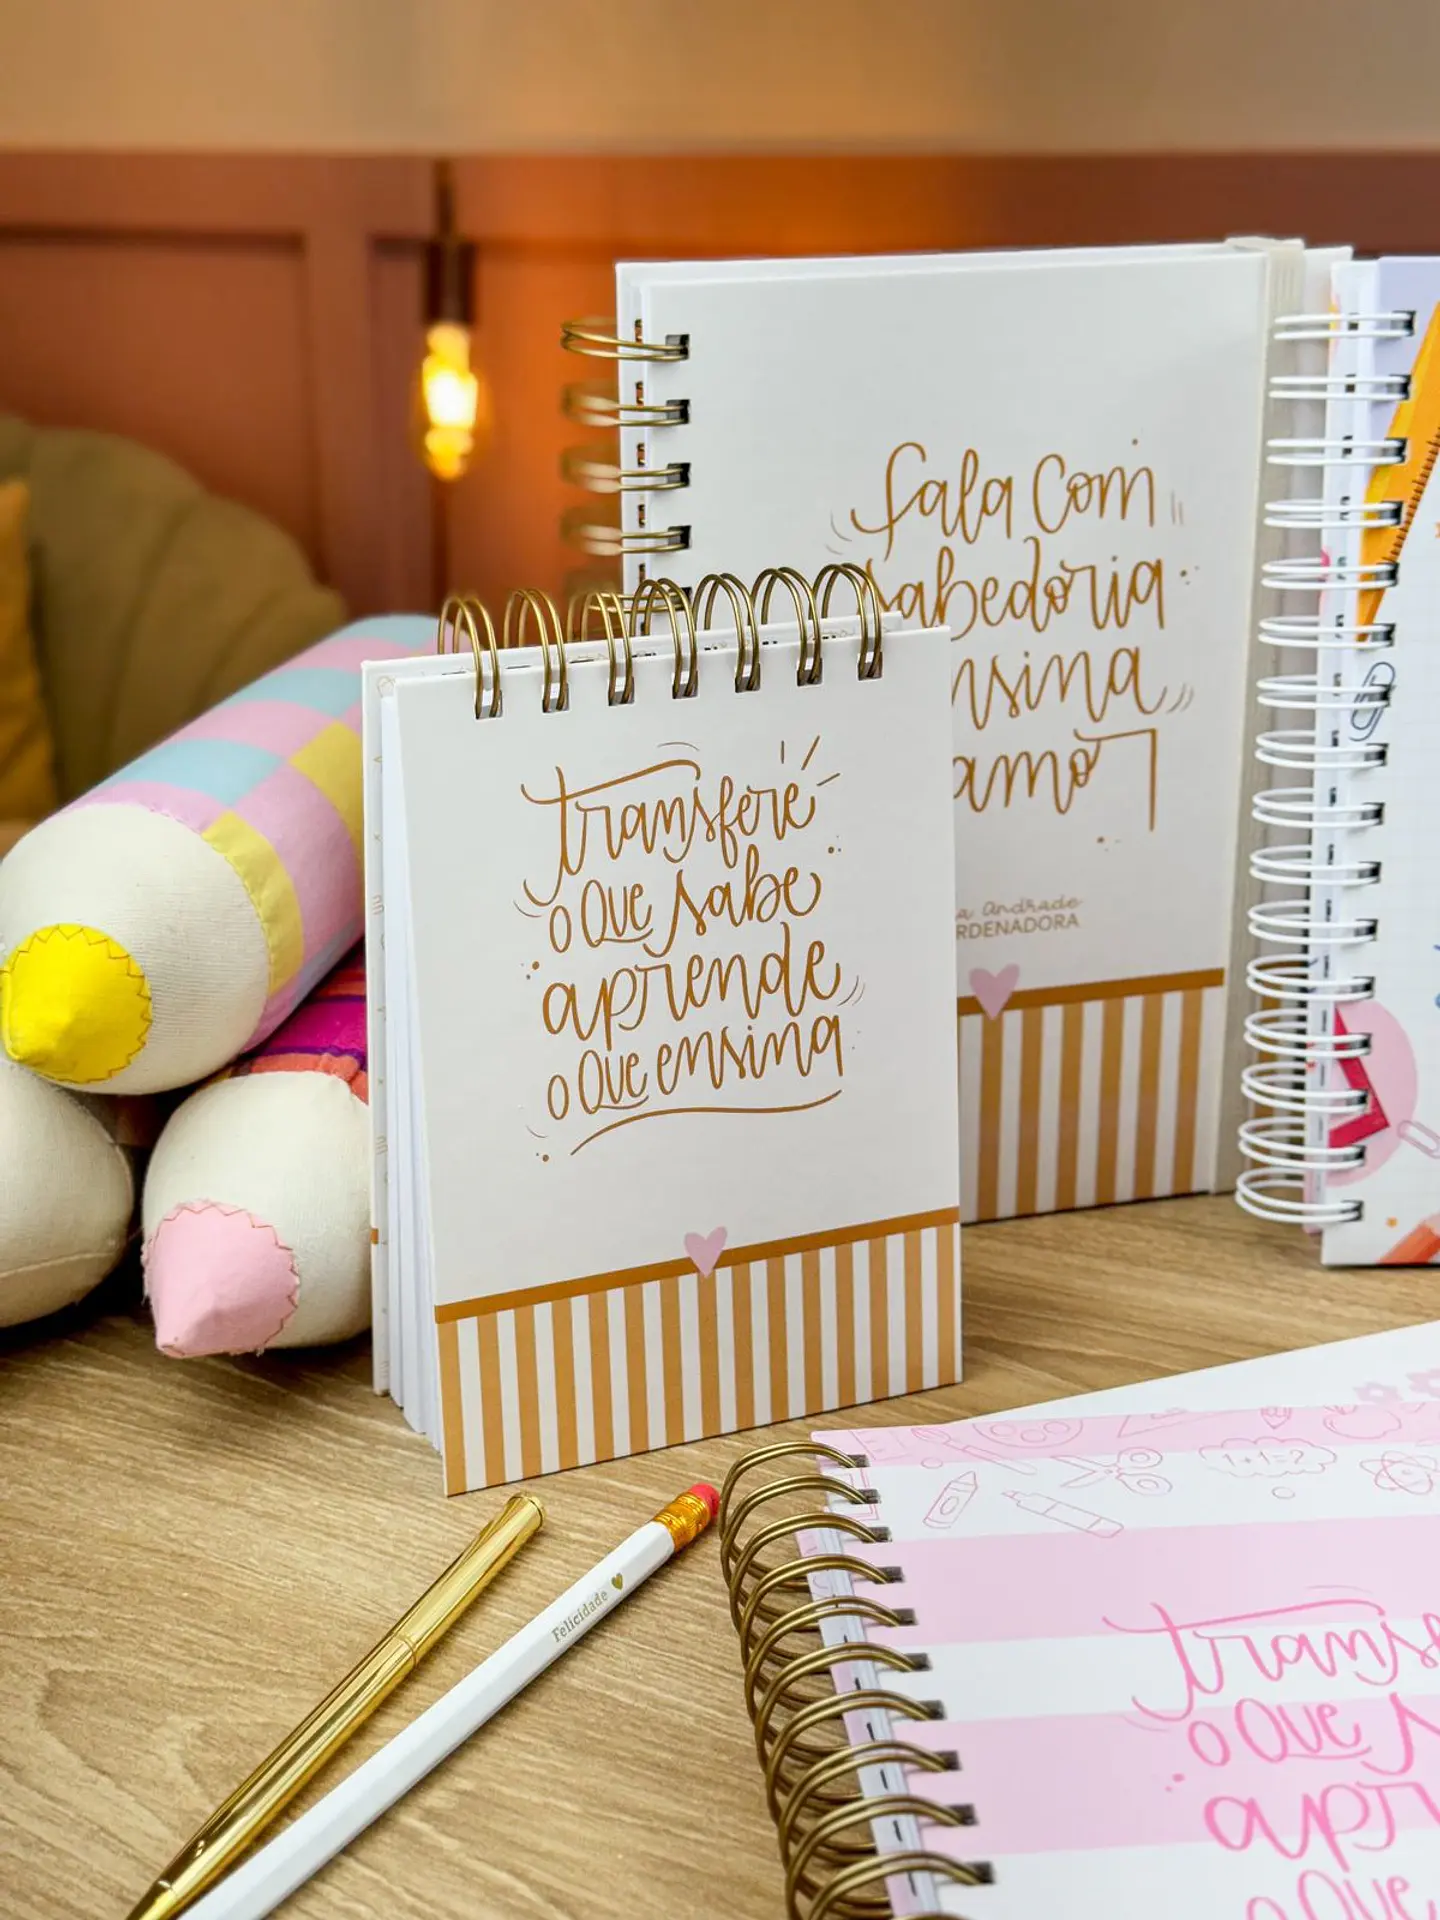 Fala com
sabedoria
ensina
amor
Andrade
RDENADORA
transfere
o que sabe
aprende
o que ensina
Felicidade
1+1=2
o que